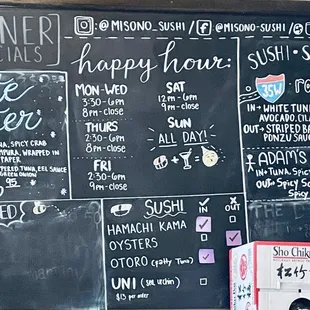 NER
CIALS
: @MISONO_SUSHI / : @MISONO-SUSHI /
happy hour:
MON-WED
3:30-6pm
8pm-close
THURS
2:30-6pm
8pm-close
FRI
2:30-6pm
9pm-close
SAT
12pm-6pm
9pm-close
SUN
ALL DAY!
SUSHI
IN
OUT
HAMACHI KAMA
OYSTERS
OTORO (fatty Tuna)
UNI (sea urchin)
$13 per order
SUSHI
35W
IN WHITE TUN
AVOCADO, CIL
OUT STRIPED BA
PONZU SAUC
ADAM'S
IN: TUNA, Spic
OUT: Spicy Sc
Spicy Sa
NA, SPICY CRAB
MPURA, WRAPPED IN
PAPER
EEL SAUCE
GREEN ONION
95
ED
Sho Chiku